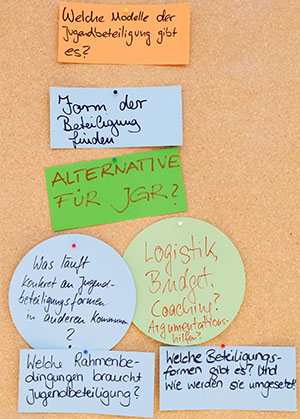 Welche Modelle der
Jugendbeteiligung gibt
es?
Form der
Beteiligung
finden
ALTERNATIVE
FÜR JGR?
Was läuft
konkret an Jugend-
beteiligungsformen
in anderen Kommunen
?
Logistik,
Budget,
Coaching?
Argumentations-
hilfen?
Welche Rahmenbe-
dingungen braucht
Jugendbeteiligung?
Welche Beteiligungs-
formen gibt es? Und
wie werden sie umgesetzt